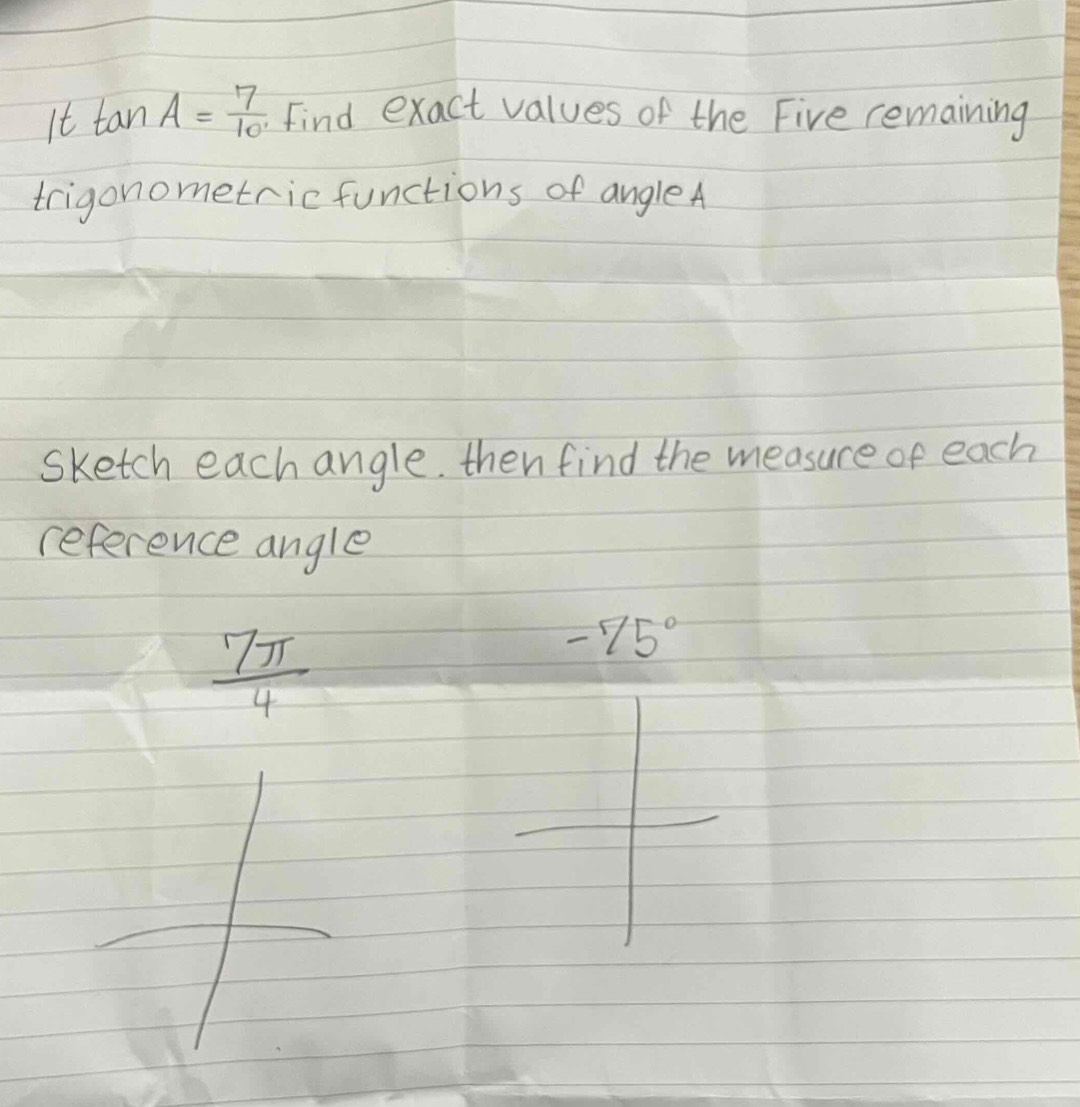 It tan A = 7/10. Find exact values of the Five remaining
trigonometric functions of angle A
Sketch each angle. then find the measure of each
reference angle
7π/4 -75°